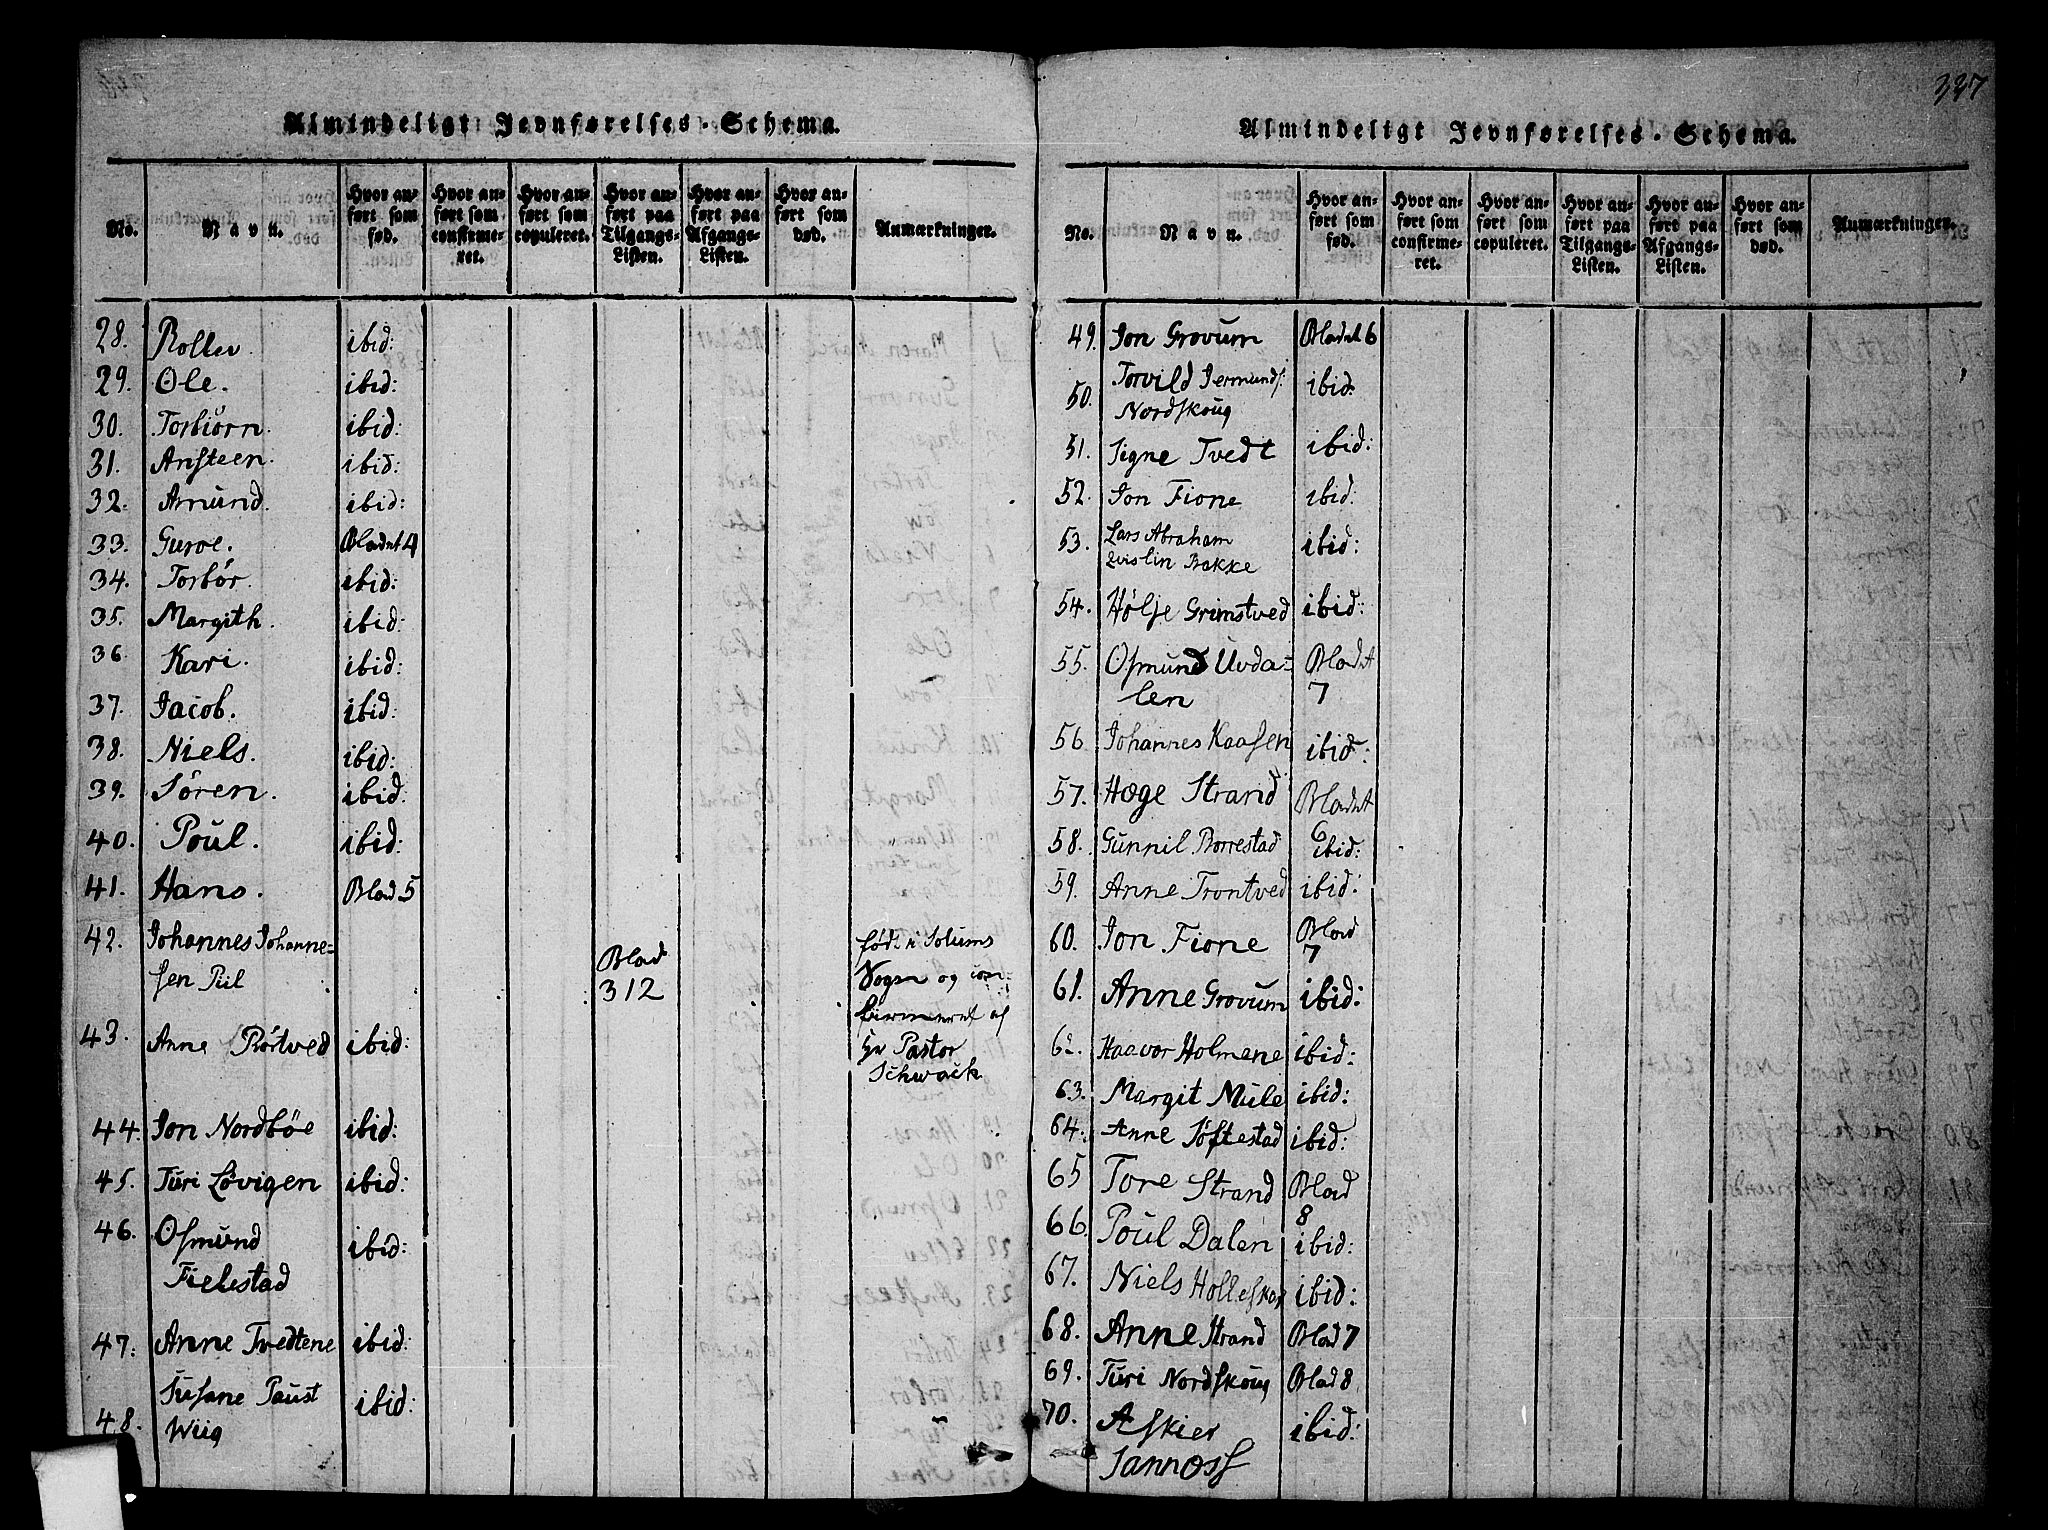 Almindeligt Jevnførelses-Schema.
No.
Navn.
Hvor anført som fød.
Hvor anført som confirmeret.
Hvor anført som copuleret.
Hvor anført paa Tilgangs-Listen.
Hvor anført paa Afgangs-Listen.
Hvor anført som død.
Anmærkninger.
28. Rollev. ibid:
29. Ole. ibid:
30. Torbiörn. ibid:
31. Ansteen. ibid:
32. Amund. ibid:
33. Guroe. Bladet 4
34. Torbör. ibid:
35. Margith. ibid:
36 Kari. ibid:
37. Jacob. ibid:
38. Niels. ibid:
39. Sören. ibid.
40. Poul. ibid:
41. Hans. Blad 5
42. Johannes Johanne=
sen Piil
Blad
312
född i Solums
Sogn og con=
firmeret af
Hr Pastor
Schwack
43. Anne Röstved ibid:
44. Jon Nordböe ibid:
45. Turi Lövigen ibid:
46. Osmund
Fielestad
ibid:
47: Anne Tvedtene ibid:
48. Susane Paust
Wiig
ibid:
337
Almindeligt Jevnførelses-Schema.
No.
Navn.
Hvor anført som fød.
Hvor anført som confirmeret.
Hvor anført som copuleret.
Hvor anført paa Tilgangs-Listen.
Hvor anført paa Afgangs-Listen.
Hvor anført som død.
Anmærkninger.
49. Jon Grovum Bladet 6
50. Torvild Jermunds:
Nordskoug
ibid:
51. Signe Tvedt ibid:
52. Jon Fione ibid.
53. Lars Abraham
Qvislin Bakke
ibid:
54. Hölje Grimstved ibid:
55. Osmund Uvda=
len
Bladet
7
56 Johannes Kaasen ibid:
57. Hæge Strand Bladet
6
58. Gunnil Borrestad ibid:
59. Anne Trontved ibid:
60. Jon Fione Blad
7
61. Anne Grovum ibid:
62. Haavor Holmene ibid:
63. Margit Mule ibid:
64. Anne Söftestad ibid:
65 Tore Strand Blad
8
66. Poul Dalen ibid:
67. Niels Holleskar ibid:
68. Anne Strand Blad 7
69. Turi Nordskoug Blad 8
70. Askier
Jannoss
ibid: